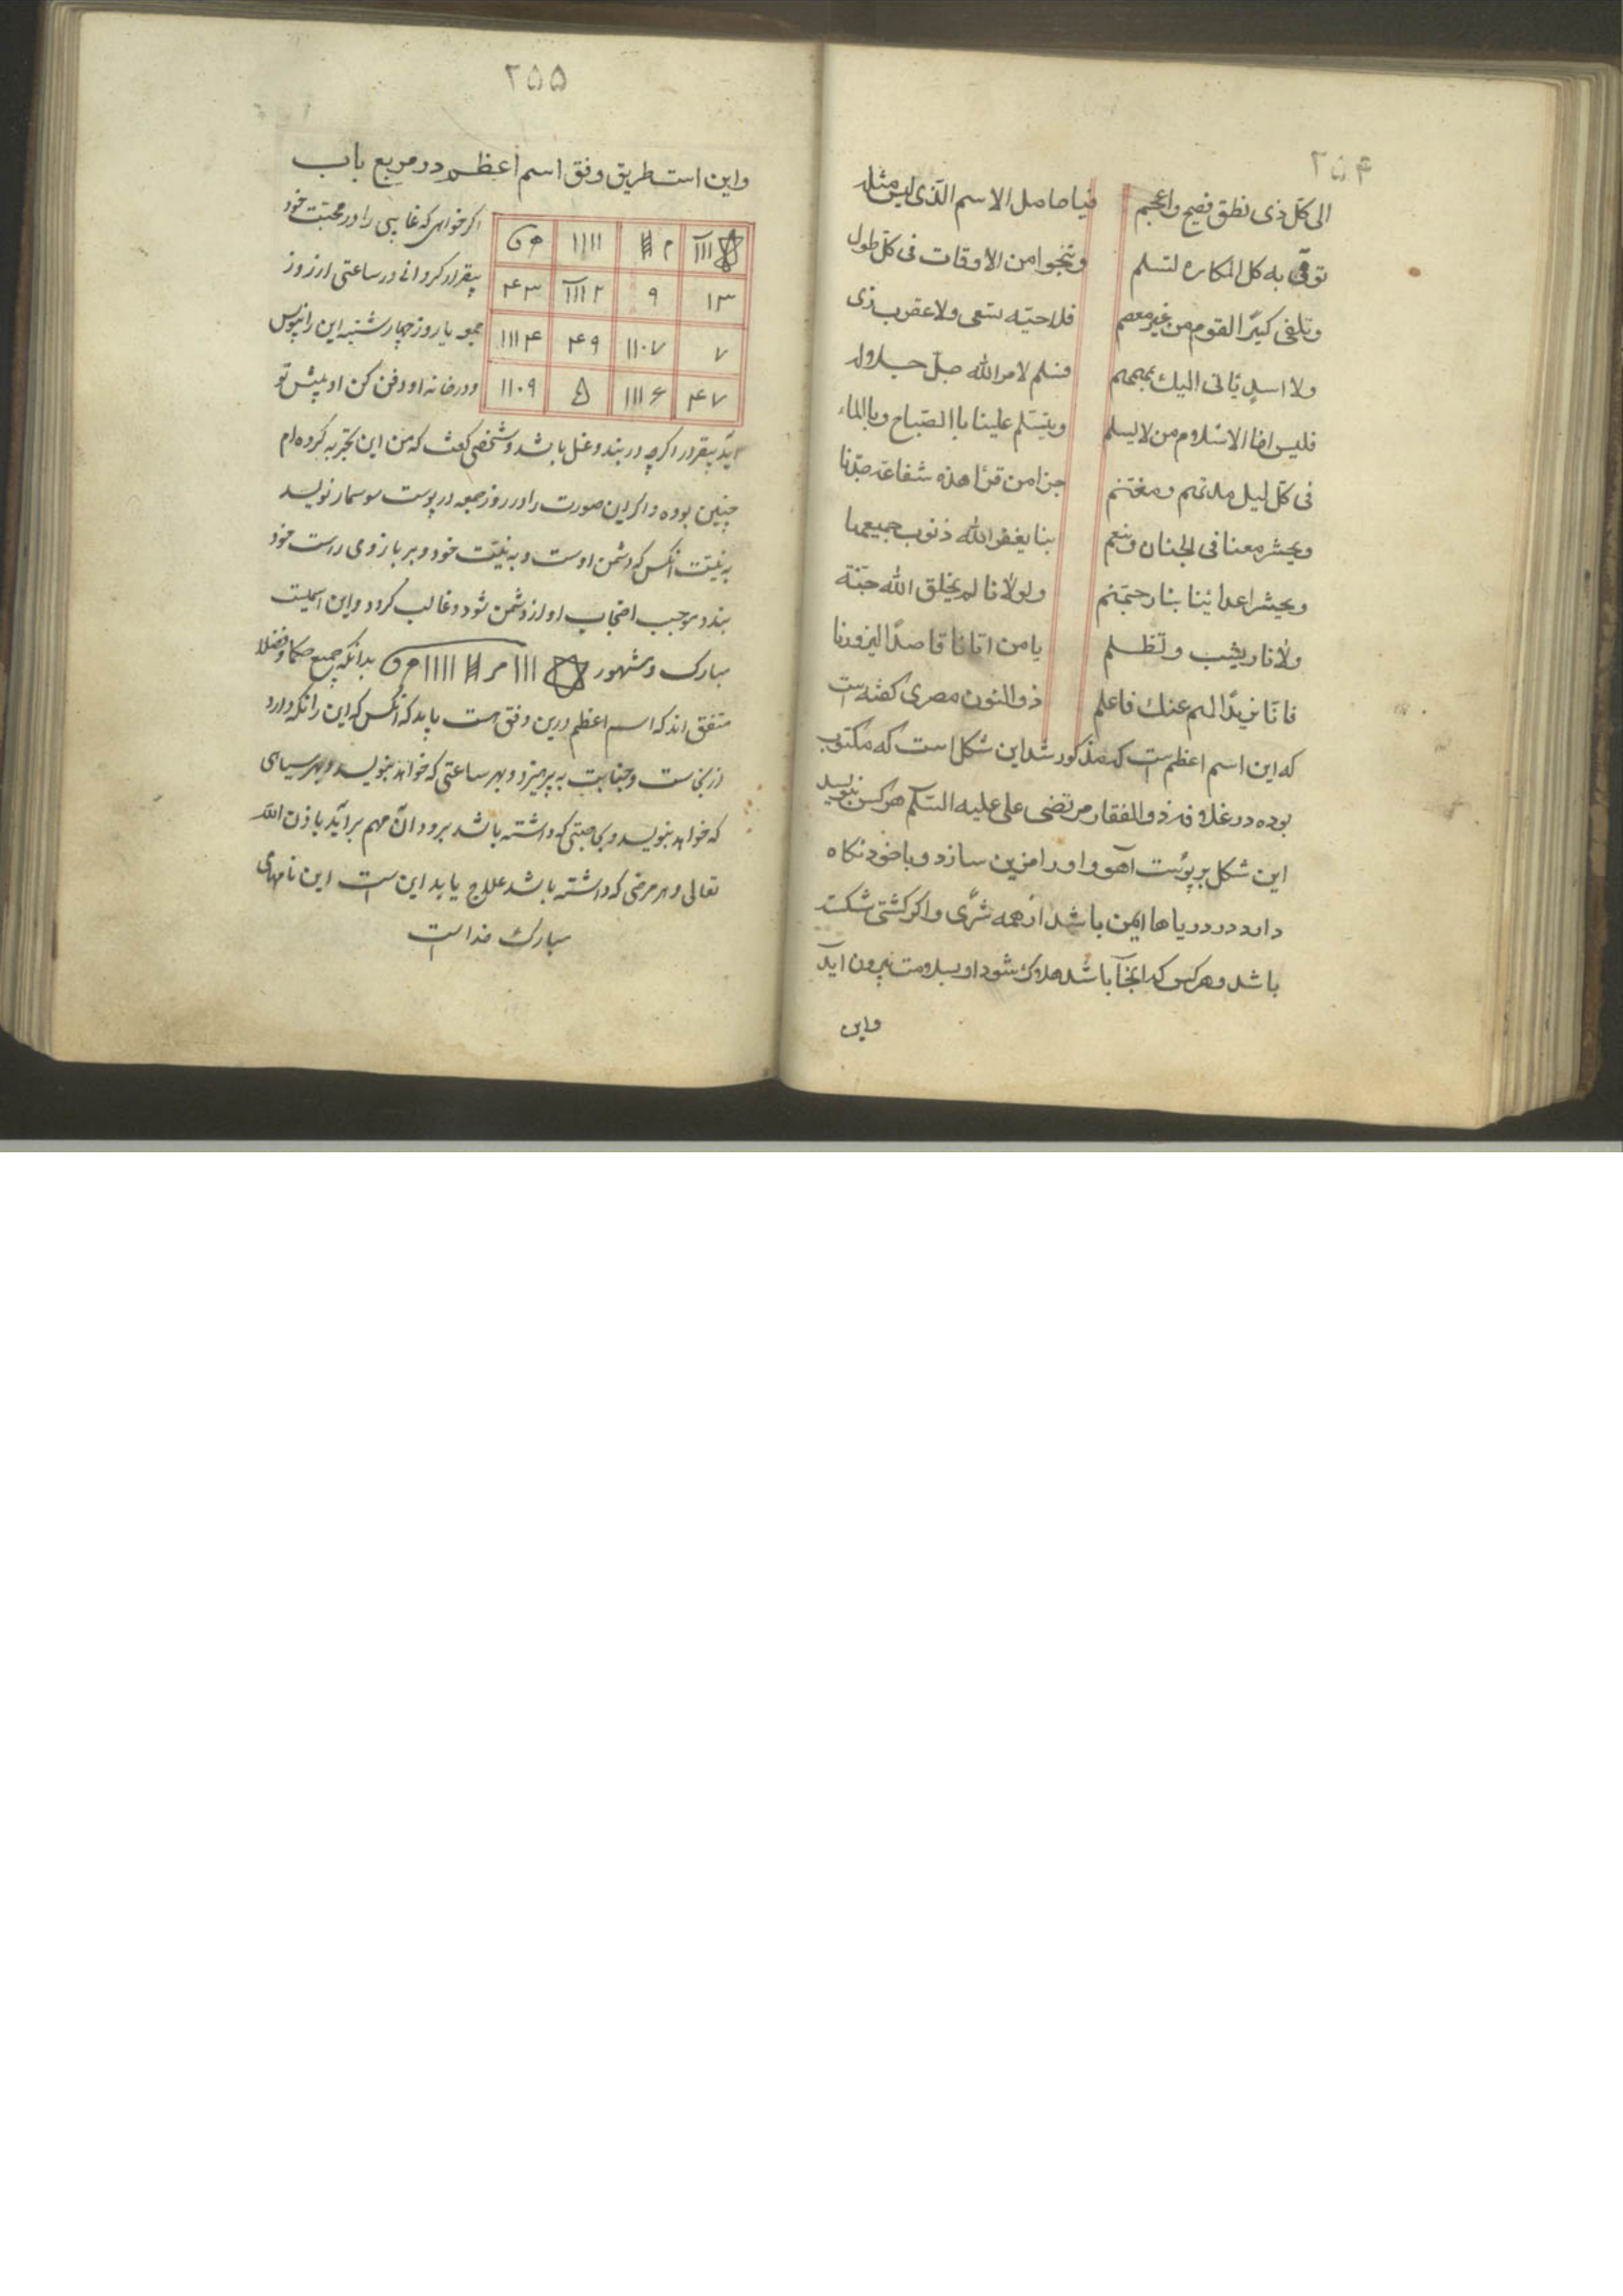 ۲۵۴
الی کل ذی نطق فصیح واعجم
فیا حامل الاسم الذی لیس مثله
توقی به کل المکاره لتسلم
وتنجوا من الاوقات فی کل طول
وتلفی کبیرا القوم من غیر معصم
فلا حیّه تسعی ولا عقرب ذی
ولا اسد یاتی الیك
فسلم لامر الله جلّ جلاله
فلیس اخا الاسلام من لا یسلم
ویتسلم علینا باالصباح وباالماء
فی کل لیل
جزا من قرا هذه شفاعة جدّنا
ویحشر معنا فی الجنان وینعم
بنا یغفر الله ذنوب جمیعها
ویحشر اعدائینا بنار جهنم
ولولانا لم یخلق الله جنّة
ولا نار یشب وتظلم
یا من اتانا قاصدا لیزورنا
فانا نزید الهم عنك فاعلم
ذوالنون مصری کفته است
که این اسم اعظم است که مذکور شد این شکل است که مکتوب
بوده در غلاف ذوالفقار مرتضی علی علیه السلام هر کس بنویسد
این شکل بر پوست آهو و او را مزین سازد و با خود نکاه
دارد در دریاها ایمن باشد از همه شرّی واکر کشتی شکسته
باشد وهر کس که آنجا باشد هلاك شود او بسلامت بیرون اید
واین
۲۵۵
واین است طریق وفق اسم اعظم در مربع باب
اکر خواهی که غایبی را در محبت خود
بیقرار کردانی در ساعتی از روز
جمعه یا روز چهارشنبه این را بنویس
ودر خانه او دفن کن او پیش تو
۱۳ ۹ ۲ ااا ۴۳
۷ ۱۱۰۷ ۴۹ ۱۱۱۴
۴۷ ۱۱۱۶ ۵ ۱۱۰۹
آید بیقرار اکرچه در بند و غل باشد و شخصی کفت که من این تجربه کرده‌ام
چنین بوده و اکر این صورت را در روز جمعه در پوست سوسمار نویسد
به نیّت انکس که دشمن اوست و به نیّت خود و بر بازوی راست خود
بندد موجب احتجاب او از دشمن شود و غالب کردد و این اسمیست
مبارك و مشهور بدانکه جمیع حکما و فضلا
متفق اند که اسم اعظم درین وفق است باید که انکس که این را نکه دارد
از نجاست و جنابت به پرهیزد و بهر ساعتی که خواهد بنویسد و بهر سیاهی
که خواهد بنویسد و بحاجتی که داشته باشد برود آن مهم برآید باذن الله
تعالی و هر مرضی که داشته باشد علاج یابد این است این نامهای
مبارك خداست